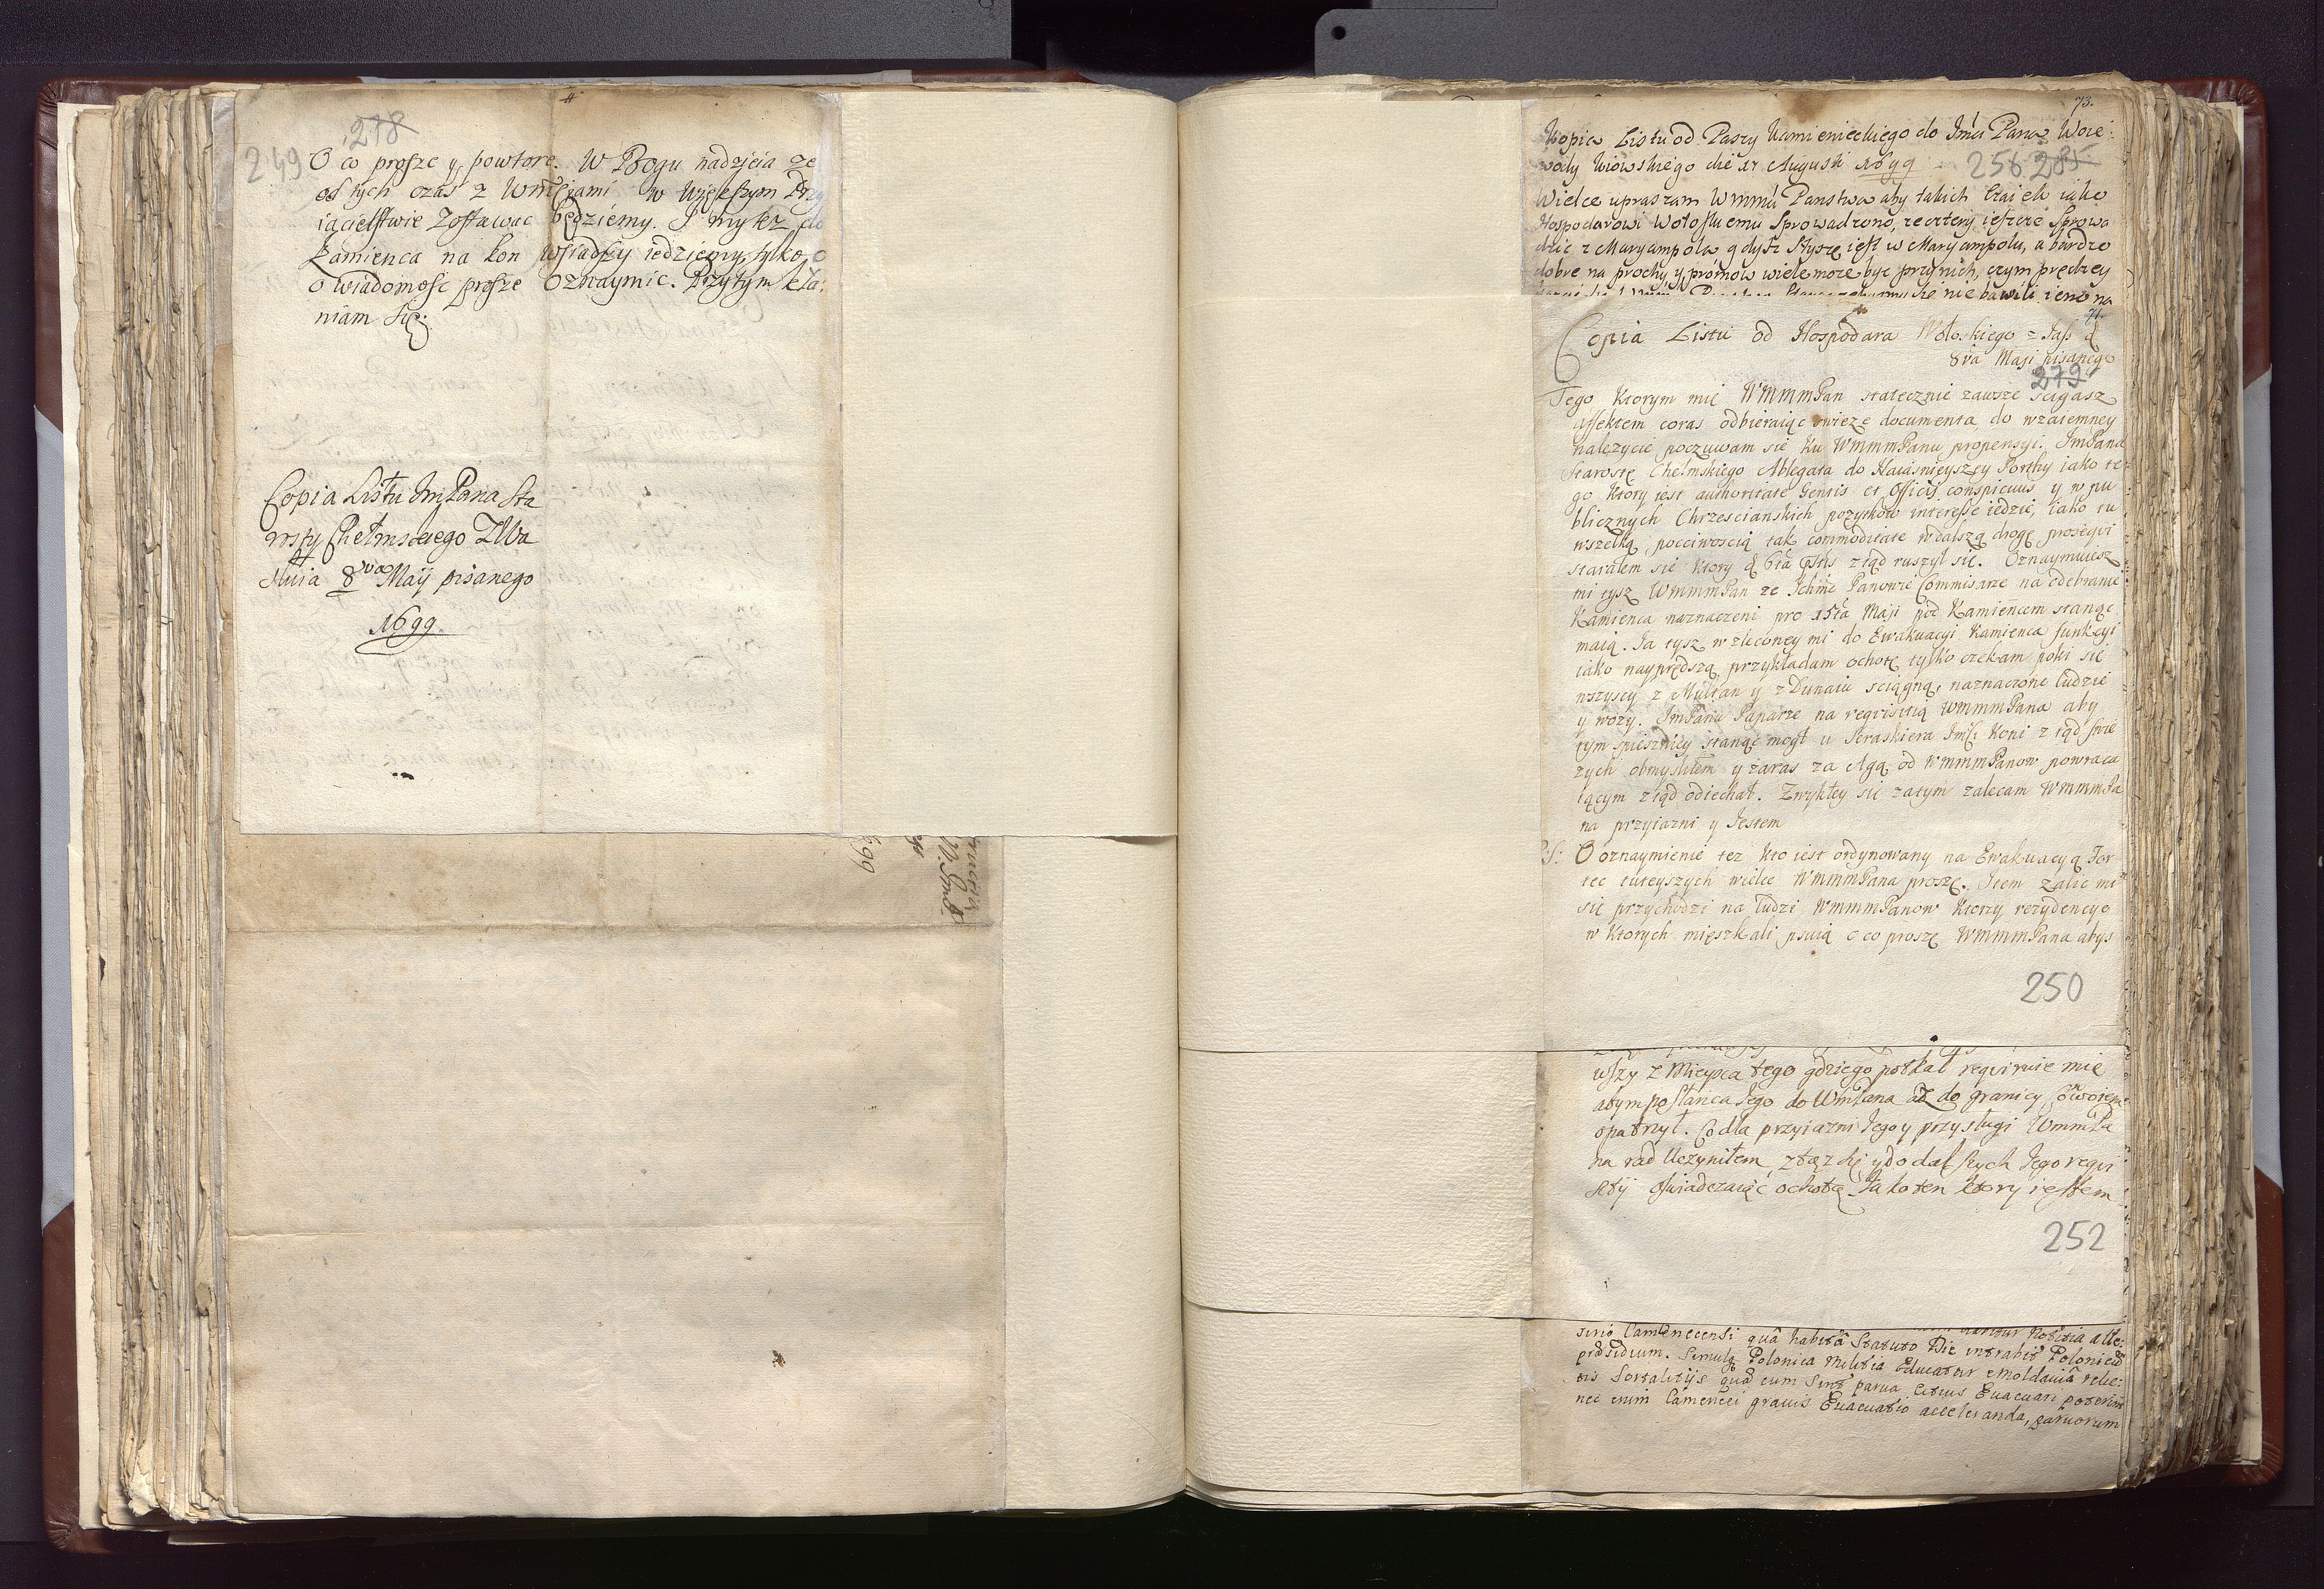 278
249
O co prosze y powtore. W Bogu nadzieia ze
od tych czas z Wmciami w większym Przy
iacielstwie zostawac będziemy. I my tez do
Kamienca na kon wsiadszy iedziemy, tylko o
o wiadomosc prosze oznaymic. Przytym kła:
niam się.
Copia Listu ImPana Sta
rosty Chełmskiego
8va Maij pisanego
1699.
699
73.
Kopia Listu od Paszy Kamienieckiego do Imci Pana Woie:
wody Kiowskiego die 17 Augusti 1699
256 285
Wielce upraszam Wmmci Panstwa aby takich
Hospodarowi Wołoskiemu Sprowadzono, ze cztery ieszcze Sprowa
dzic z Maryampola gdysz słyszę iest w Maryampolu, a bardzo
dobre na prochy, y promow wiele moze byc przy nich, czym prędzey
się nie bawili ieno na
74.
Copia Listu od Hospodara Wołoskiego z Jass d
8va Maji pisanego
279
Tego ktorym mie WMMMPan statecznie zawsze scigasz
affektem coras odbieraiąc swieze documenta, do wzaiemney
nalezycie poczuwam sie ku WMMMPanu propensyi. ImPana
Starostę Chełmskiego Ablegata do Naiasnieyszey Porthy iako te
go ktory iest authoritate Gentis et Officij conspicuus y w pu
blicznych Chrzescianskich pozytkow interesse iedzie, iako tu
wszelką pocciwoscią tak commoditate w dalszą drogę proseqvi
starałem sie ktory d 6ta ztąd ruszył się. Oznaymuiesz
mi tysz WMMMPan ze Ichmc Panowie Commisarze na odebranie
Kamienca naznaczeni pro 15ta Maji pod Kamiencem stanąc
maią. Ja tysz w zleconey mi do Ewakuacyi Kamienca funkcyi
iako nayprędszą przykładam ochotę tylko czekam poki się
wszyscy z Multan y z Dunaiu sciągną, naznaczone ludzie
y wozy. ImPanu Paparze na reqvisitią WMMMPana aby
tym spieszniey stanąc mogł u Seraskiera Imsci koni z tąd swie
zych obmysliłem y zaras za Agą od WMMMPanow powraca
iącym z tąd odiechał. Zwykłey się zatym zalecam WMMMPa
na przyiazni y Jestem
P.S: O oznaymienie tez kto iest ordynowany na Ewakuacyą For
tec tuteyszych wielce WMMMPana proszę. Item zalic mi
się przychodzi na ludzi WMMMPanow ktorzy rezydencye
w ktorych mięszkali psuią o co proszę WMMMPana abys
250
wszy z Mieysca tego gdzie go potkał reqviruie mię
abym posłanca Jego do WmPana asz do granicy
opatrzył. Co dla przyiazni Jego y przysługi WmmPa
na rad Uczyniłem, y do dalszych Jego reqvi
sitij oswiadczaiąc ochotę Jako ten ktory iestem
252
sirio Camenecensi quâ habitâ Statuto Die intrabit Polonicu
præsidium. Simulq Polonica Militia Educatur è Moldaviâ relic:
tis Fortalitijs quæ cum Sint parva Citius Evacuari poterint
nec enim Cameneci gravis Evacuatio acceleranda, parvorum